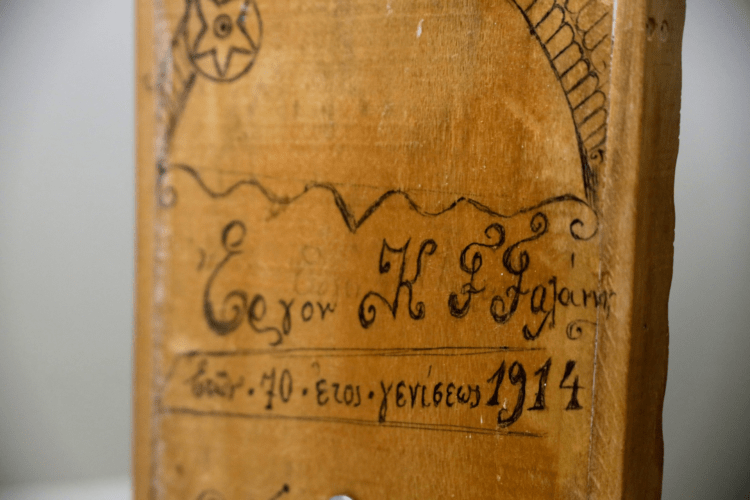 Ἔργον Κ Γ Γαλάνη
Ἐτῶν · 70 · ἔτος · γενίσεως 1914